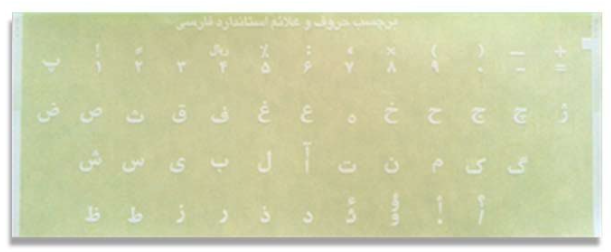 برچسب حروف و علائم استاندارد فارسی
پ ! ۱ ۲ ۳ ریال ۴ ٪ ۵ : ۶ ۷ × ۸ ( ۹ ) ۰ — - + =
ض ص ث ق ف غ ع ه خ ح ج چ ژ
ش س ی ب ل آ ت ن م ک گ
ظ ط ز ر ذ د ئ ؤ و ! . ؟ /